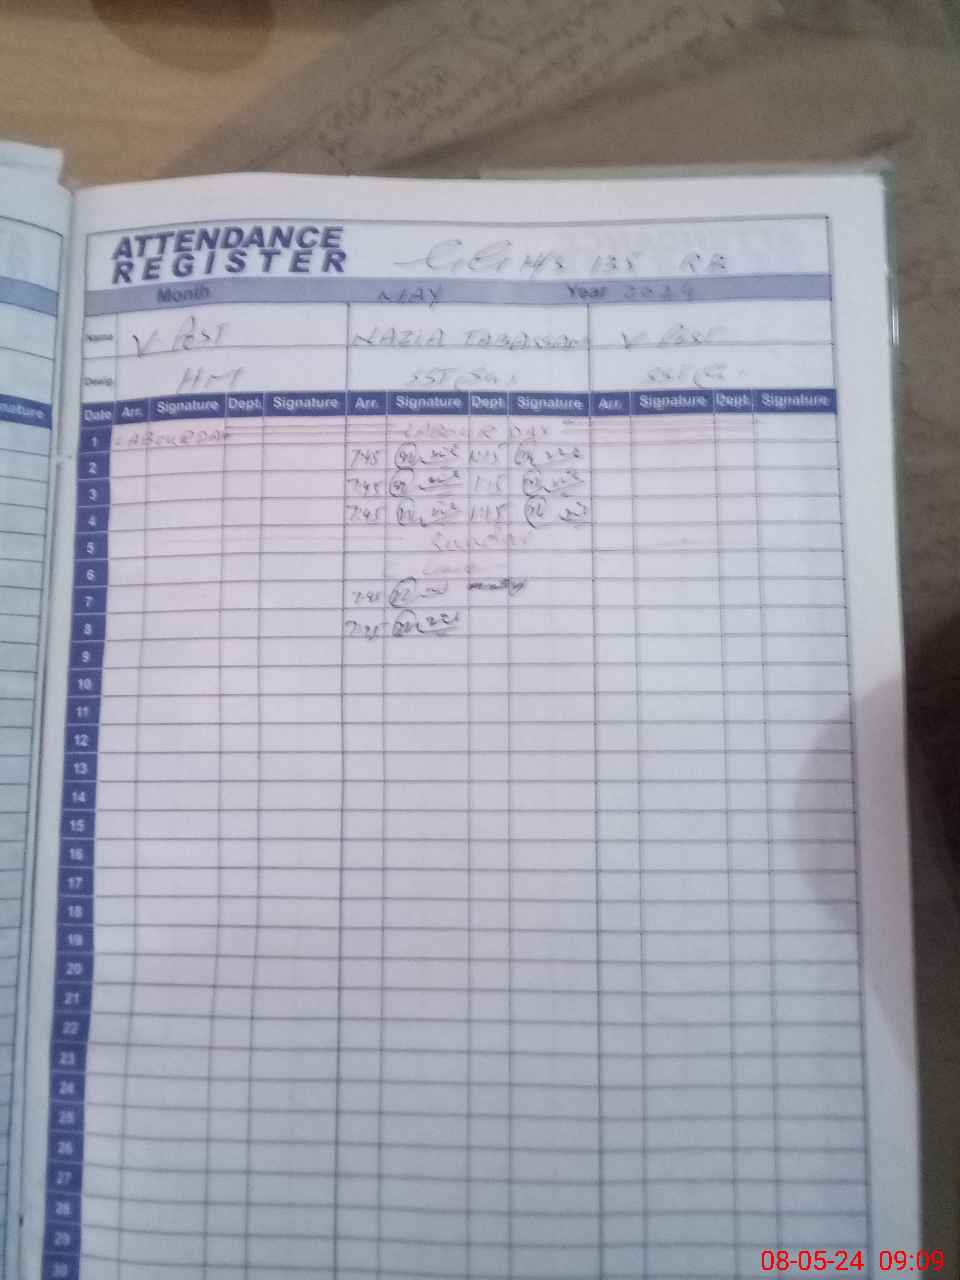 ATTENDANCE
REGISTER 135 RB
Month MAY Year 2024
Name V Post NAZIA TABASSAM V Post
Desig. HM SST
nature Date Arr. Signature Dept. Signature Arr. Signature Dept. Signature Arr. Signature Dept. Signature
1 LABOUR DAY LABOUR DAY
2 7:45 1:15
3 7:45 1:15
4 7:45 1:15
5 Sunday
6 Leave
7 7:45
8 7:45
9
10
11
12
13
14
15
16
17
18
19
20
21
22
23
24
25
26
27
28
29
30
08-05-24 09:09